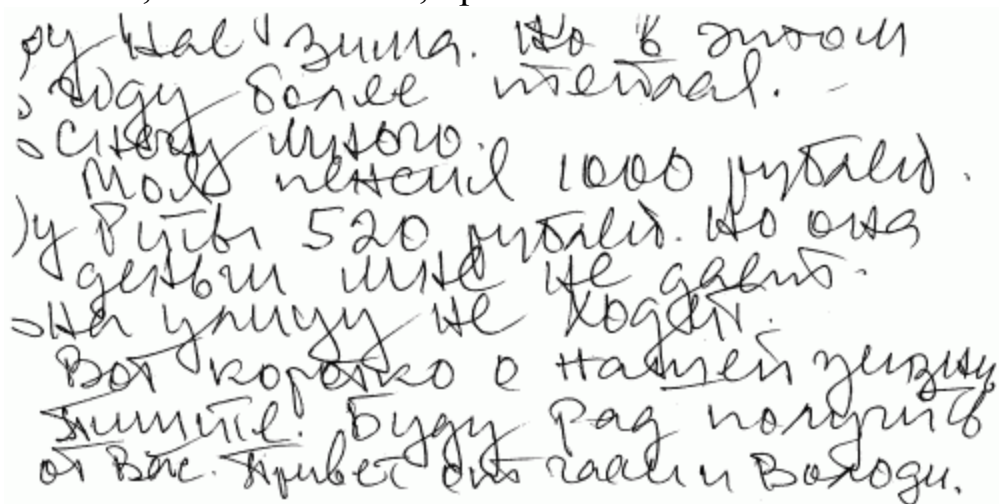 у нас зима. Но в этом
году более теплая.
Снегу много.
Моя пенсия 1000 рублей.
У Риты 520 рублей. Но она
деньги мне не дает.
На улицу не ходят.
Вот коротко о нашей жизни
Пишите. Буду рад получить
от Вас. Привет от Гали и Володи.